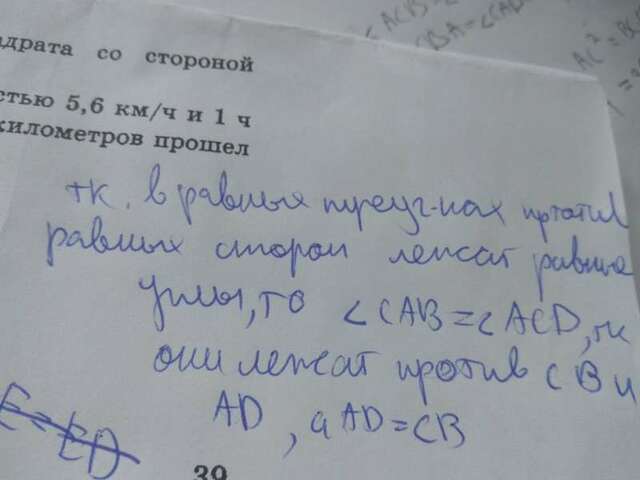 ∠ACB=
∠BA=∠CAD
AC²=BC
адрата со стороной
стью 5,6 км/ч и 1 ч
километров прошел
тк. в равных треуг-ках против
равных сторон лежат равные
углы, то ∠CAB=∠ACD, тк
они лежат против CB и
AD, а AD=CB
39